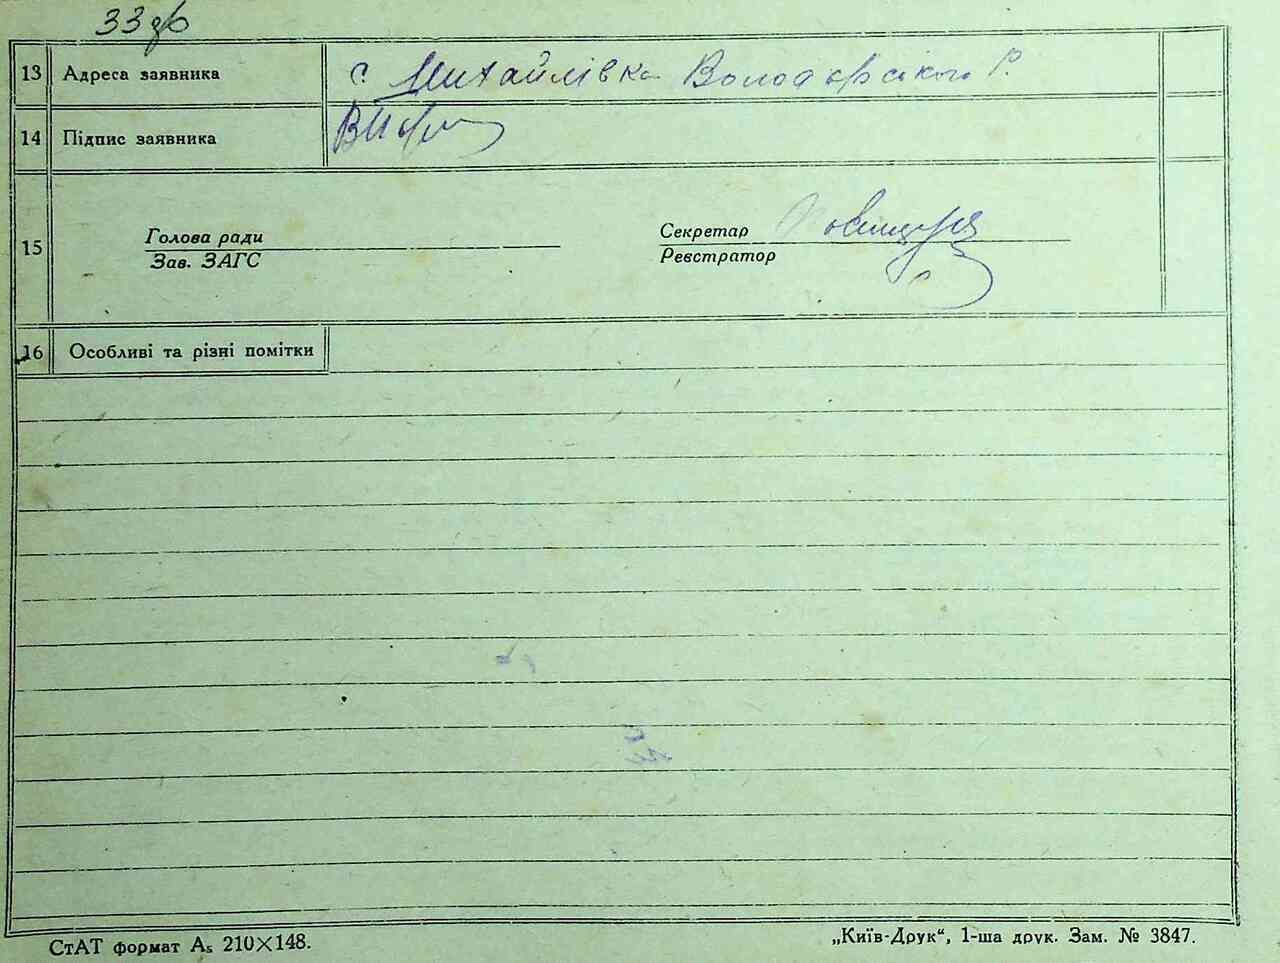 33 зв
13 Адреса заявника с. Михайлівка Володарського Р.
14 Підпис заявника
15
Голова ради Секретар
Зав. ЗАГС Реєстратор
16 Особливі та різні помітки
СтАТ формат А₅ 210×148. „Київ-Друк“, 1-ша друк. Зам. № 3847.